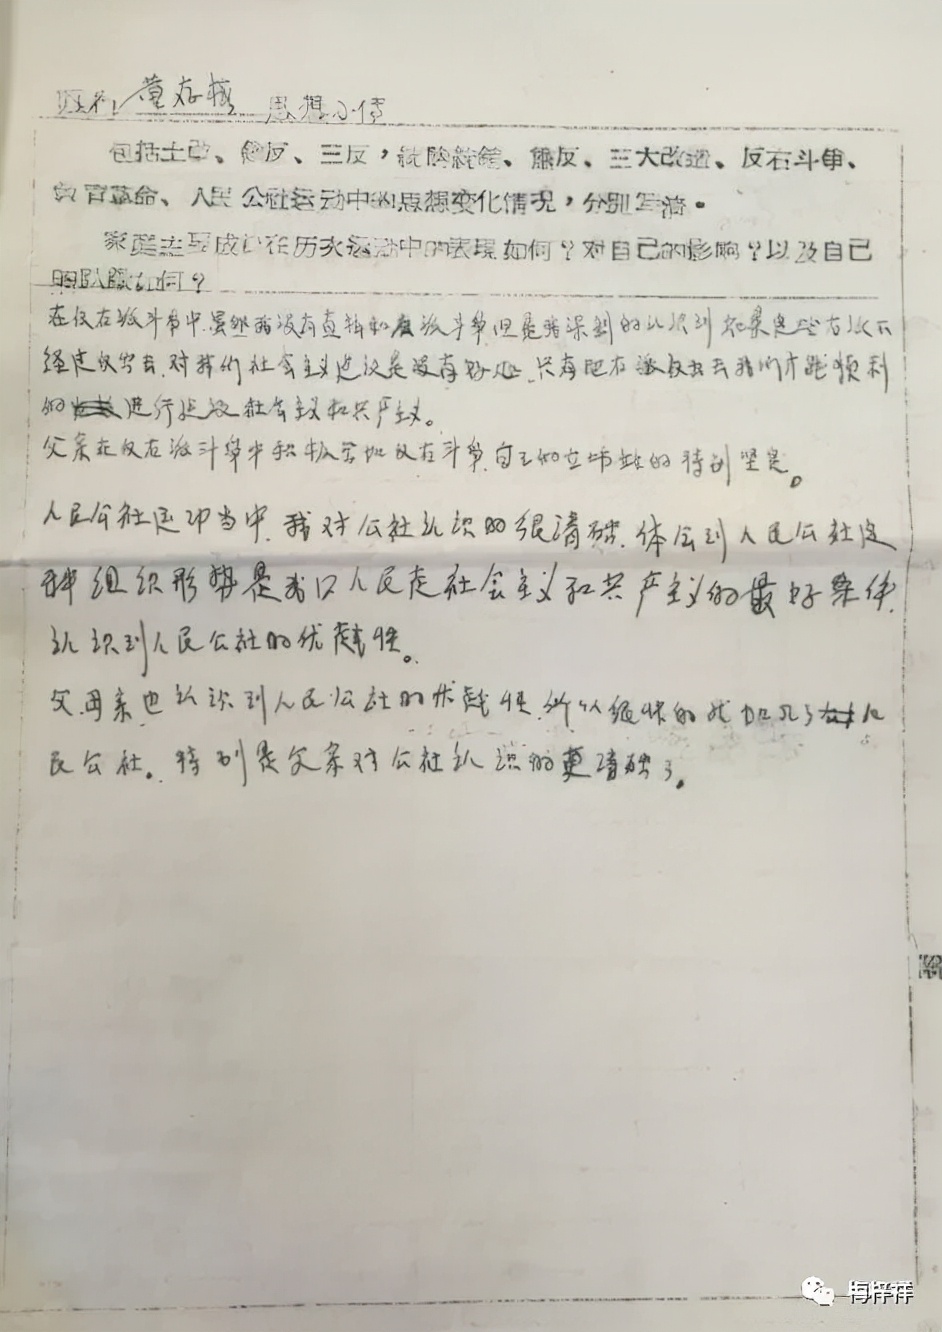 董存 思想小传
包括土改、镇反、三反，统购统销、肃反、三大改造、反右斗争、
教育革命、人民公社运动中的思想变化情况，分别写清。
家庭主要成员在历次运动中的表现如何？对自己的影响？以及自己
的认识如何？
在反右派斗争中虽然我没有直接和右派斗争但是我深刻的认识到如果这些右派不
经过反出去，对我们社会主义建设是没有好处，只有把右派反出去我们才能顺利
的 进行建设社会主义和共产主义。
父亲在反右派斗争中积极参加反右斗争，自己的立场站的特别坚定。
人民公社运动当中，我对公社认识的很清楚，体会到人民公社这
种组织形势是我口人民走社会主义和共产主义的最好条件，
认识到人民公社的优越性。
父母亲也认识到人民公社的优越性，所以很快的就加入了人
民公社。特别是父亲对公社认识的更清楚了。
梅梓祥